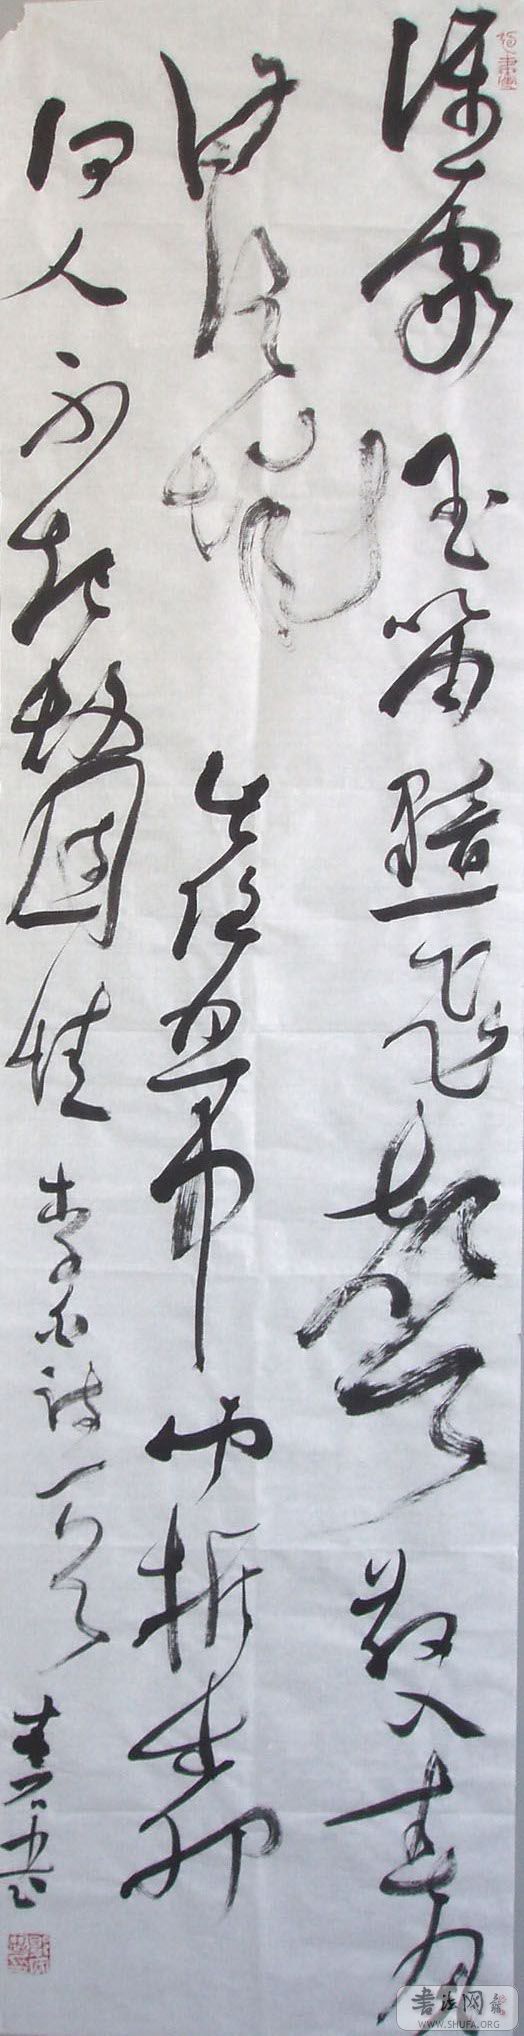 誰家玉笛暗飛聲散入春風
滿洛城此夜曲中聞折柳
何人不起故園情李白詩一首
書法网
WWW.SHUFA.ORG